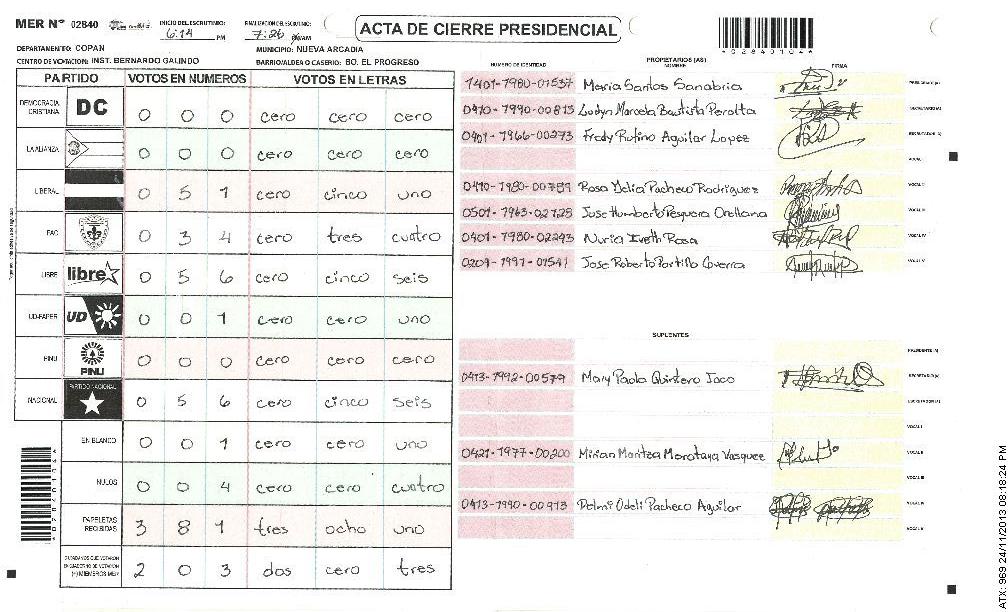 MER Nº 02840
INICIO DEL ESCRUTINIO: 6:14 PM
FINALIZACION DEL ESCRUTINIO: 7:26
ACTA DE CIERRE PRESIDENCIAL
*02840104*
DEPARTAMENTO: COPAN
MUNICIPIO: NUEVA ARCADIA
CENTRO DE VOTACION: INST. BERNARDO GALINDO
BARRIO/ALDEA O CASERIO: BO. EL PROGRESO
PARTIDO VOTOS EN NUMEROS VOTOS EN LETRAS
DEMOCRACIA CRISTIANA DC 0 0 0 cero cero cero
LA ALIANZA 0 0 0 cero cero cero
LIBERAL 0 5 1 cero cinco uno
FAC 0 3 4 cero tres cuatro
LIBRE libre 0 5 6 cero cinco seis
UD-FAPER UD 0 0 1 cero cero uno
PINU PINU 0 0 0 cero cero cero
NACIONAL PARTIDO NACIONAL 0 5 6 cero cinco seis
EN BLANCO 0 0 1 cero cero uno
NULOS 0 0 4 cero cero cuatro
PAPELETAS RECIBIDAS 3 8 1 tres ocho uno
CIUDADANOS QUE VOTARON EN CUADERNO DE VOTACION (+) MIEMBROS MER 2 0 3 dos cero tres
PROPIETARIOS (AS)
NUMERO DE IDENTIDAD NOMBRE FIRMA
1401-1980-01537 Maria Santos Sanabria PRESIDENTE (A)
0410-1990-00815 Lodyn Marcela Bautista Peralta SECRETARIO (A)
0401-1966-00273 Fredy Rufino Aguilar Lopez ESCRUTADOR (A)
VOCAL I
0410-1980-00789 Rosa Melia Pacheco Rodriguez VOCAL II
0501-1963-02728 Jose Humberto Pesquera Orellana VOCAL III
0401-1980-02293 Nuria Iveth Rosa VOCAL IV
0209-1991-01541 Jose Roberto Portillo Coverra VOCAL V
SUPLENTES
PRESIDENTE (A)
0413-1992-00579 Mary Paola Quintero Jaco SECRETARIO (A)
ESCRUTADOR (A)
VOCAL I
0421-1977-00200 Mirian Maritza Morataya Vasquez VOCAL II
VOCAL III
0413-1990-00913 Delmi Odeli Pacheco Aguilar VOCAL IV
VOCAL V
ATX: 969 24/11/2013 08:18:24 PM